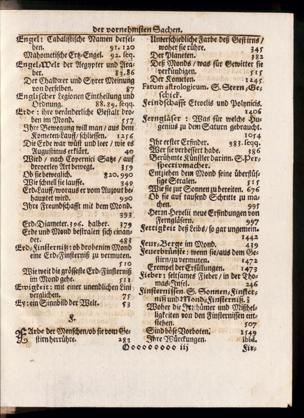 der vornehmsten Sachen.
Engel: Cabalistische Namen dersel-
ben. 91. 120
Mahometische Ertz-Engel. 92. seq.
Engel-Welt der Aegypter und Ara-
ber. 83. 86
Der Chaldäer und Syrer Meinung
von derselben. 87
Englischer Legionen Eintheilung und
Ordnung. 88. 89. seqq.
Erde: ihre veränderliche Gestalt dro-
ben im Mond. 517
Ihre Bewegung will man/ aus dem
Cometen-Lauff/ schliessen. 1216
Die Erde war wüst und leer/ wie es
Augustinus erklärt. 40
Wird/ nach Copernici Satz/ auf
dreyerley Art bewegt. 319
Ob sie beweglich. 820. 990
Wie schnell sie lauffe. 349
Erd-Lauff/ worauf er vom Autore bo-
hauptet wird. 990
Ihre Freundschafft mit dem Mond.
393
Erd-Diameter. 306. halber. 379
Erde und Mond befinstern sich einan-
der. 485
Erd-Finsterniß: ob droben im Mond
eine Erd-Finsterniß zu vermuten.
510
Wie weit die grösseste Erd-Finsterniß
im Mond geht. 511
Ewigkeit: mit einer unendlichen Lini
verglichen. 75
Ey: ein Sinnbild der Welt. 53
F.
Farbe der Menschen/ ob sie vom Ge-
stirn herrühre. 283
Unterschiedliche Farbe deß Gestirns/
woher sie rühre. 345
Der Planeten. 382
Deß Monds/ was für Gewitter sie
verkündigen. 515
Der Cometen. 1245
Fatum astrologicum. S. Stern, Ge-
schick.
Feindschafft Eteoclis und Polynicis.
1406
Ferngläser: Was für welche Hu-
genius zu dem Saturn gebraucht.
1054
Ihr erster Erfinder. 383. seqq.
Wer sie verbessert habe. 386
Berühmte Künstler darinn. S. Per-
spectivmacher.
Entziehen dem Mond seine überflüs-
sige Stralen. 515
Wie sie zur Sonnen zu bereiten. 676
Ob sie auf tausend Schritte zu ma-
chen. 995
Herrn Hevelii neue Erfindungen von
Ferngläsern. 997
Fertigkeit deß Leibs/ so gar ungemein.
1442
Feur-Berge im Mond. 439
Feuerbrünste: wenn sie/ aus dem Ge-
stirn/ zu vermuten. 1472
Exempel der Erfüllungen. 1473
Fieber: seltsames Fieber/ in der Tho-
mas-Insel. 246
Finsternissen. S. Sonnen-Finster-
niß und Mond-Finsterniß.
Woher die Irrthümer und Mißhel-
ligkeiten von den Finsternissen ent-
stehen. 507
Sind böse Vorboten. 1549
Ihre Würckungen. ibid.
iij
Fix-